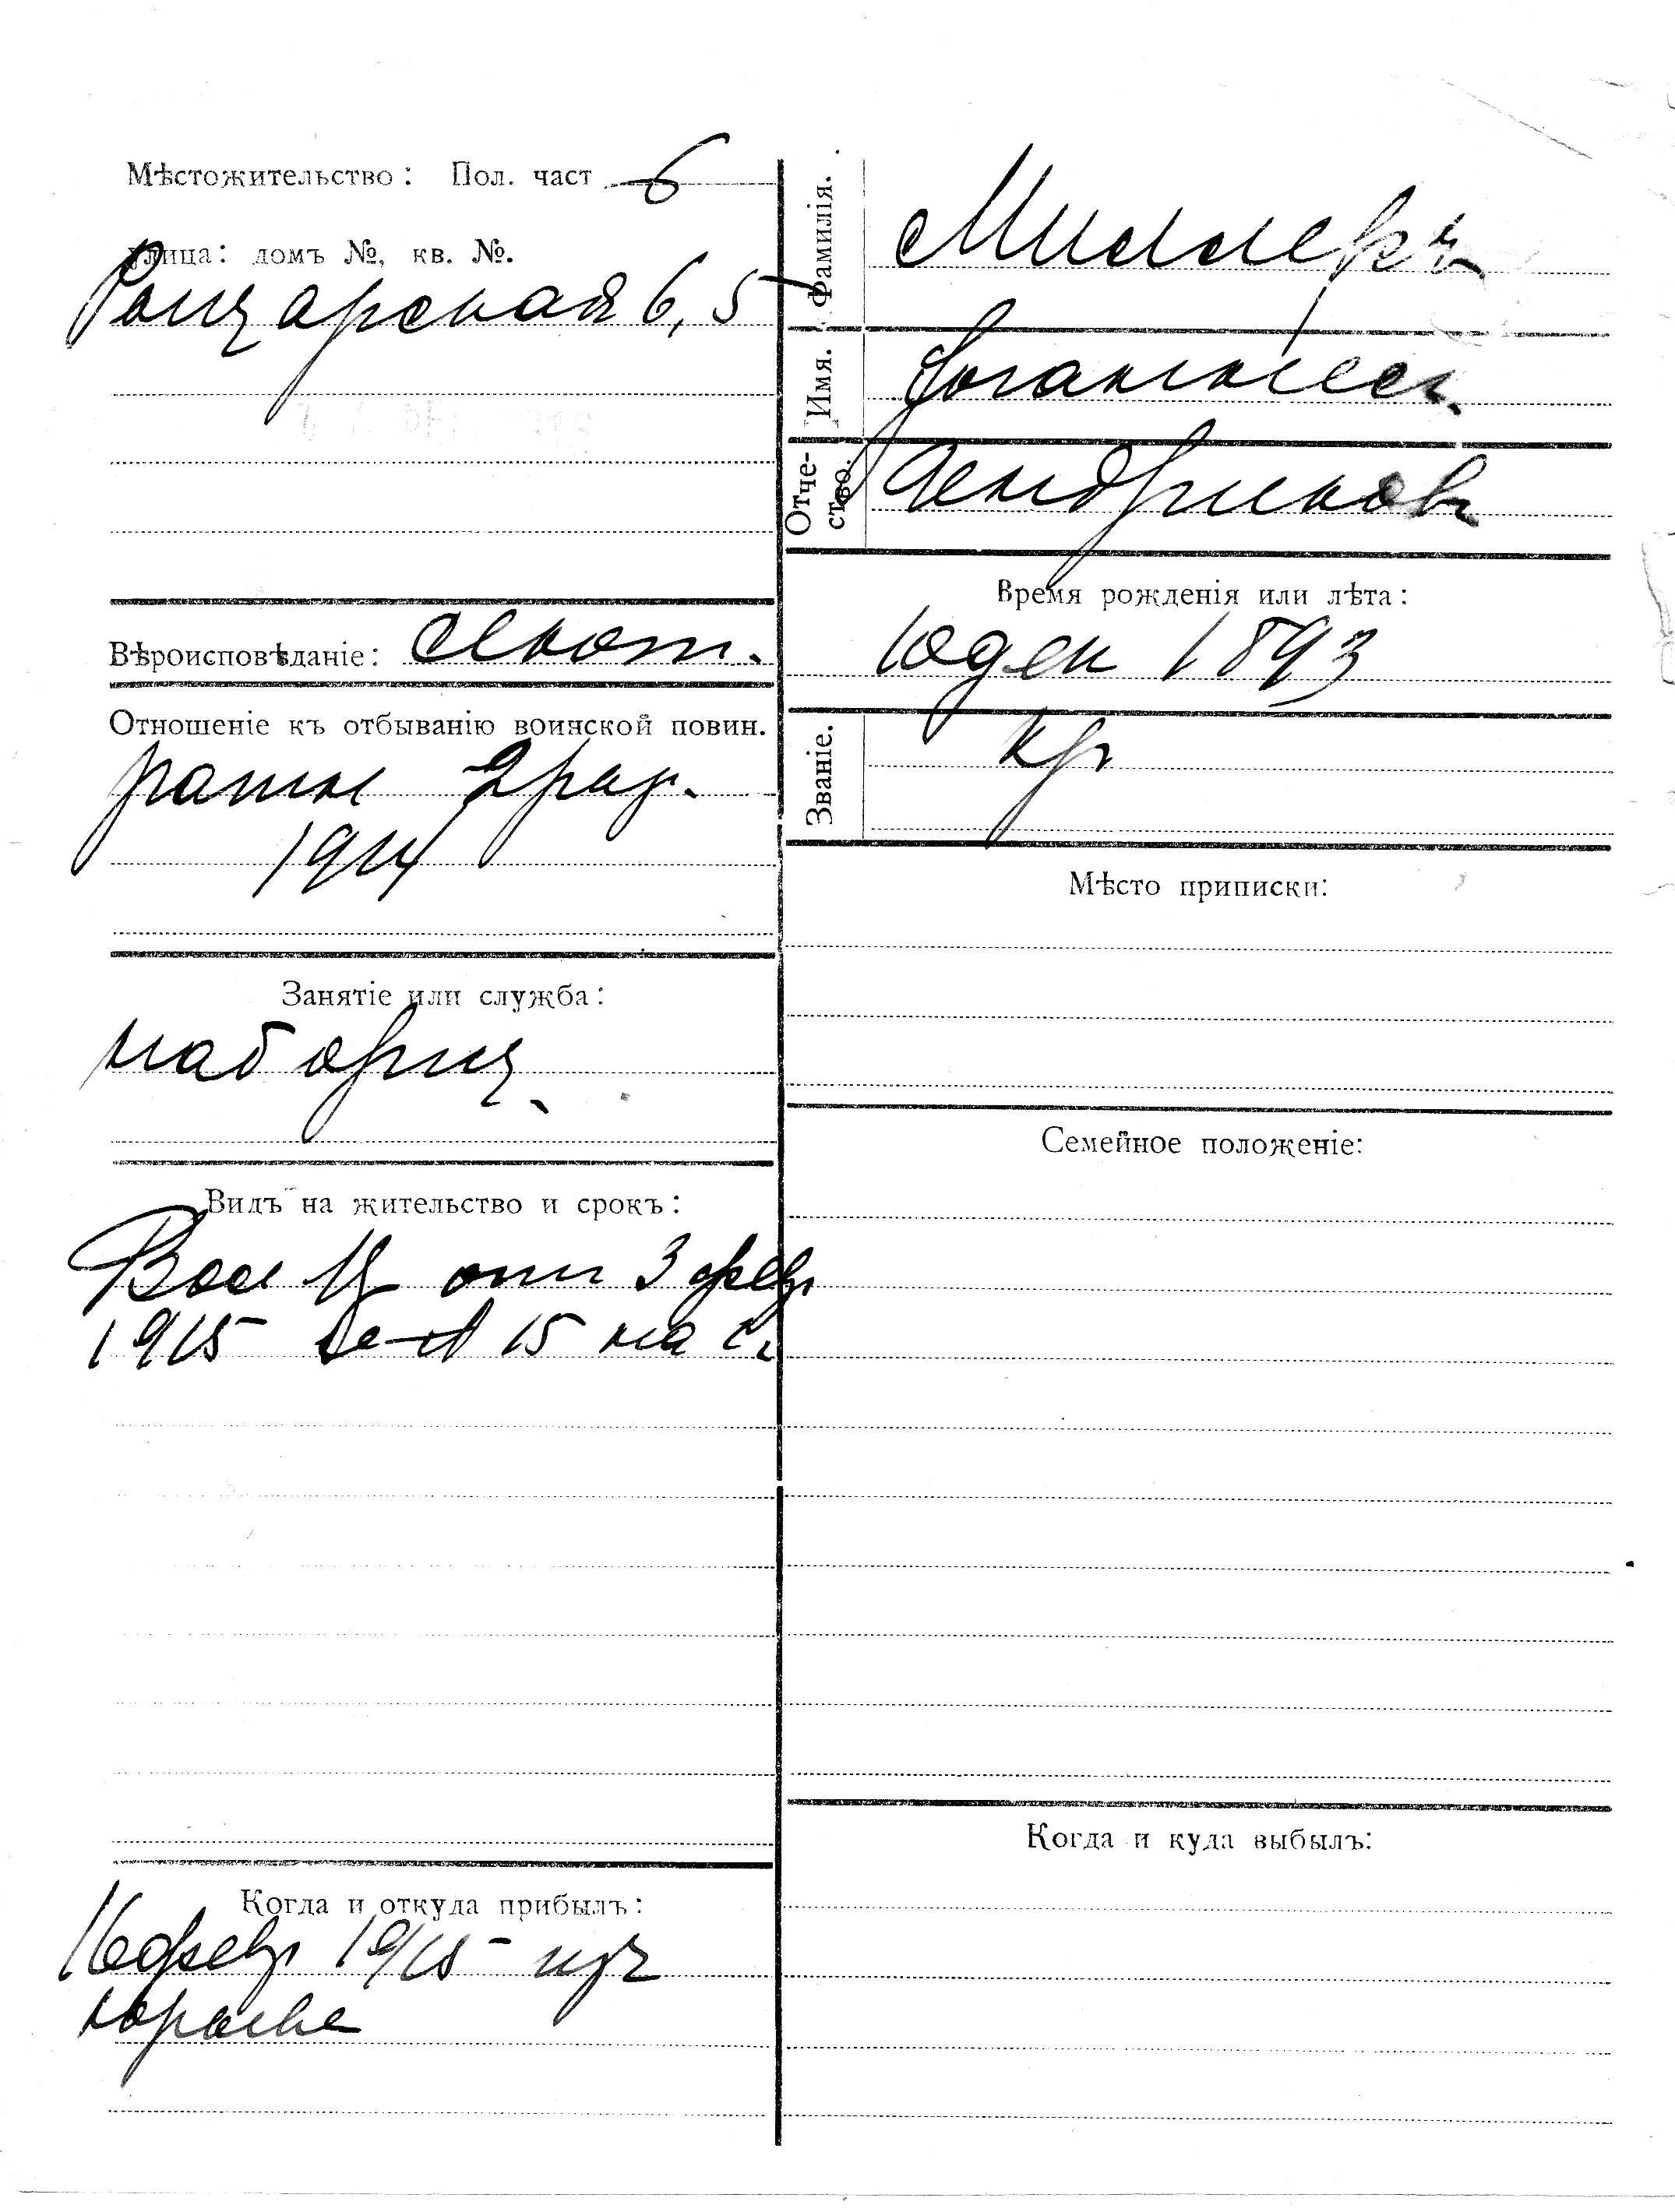 Мѣстожительство: Пол. част 6
улица: домъ №, кв. №.
Гончарская 6, 5
Вѣроисповѣданіе:
Отношеніе къ отбыванію воинской повин.
ратн 2 разр.
1914
Занятіе или служба:
наборщ.
Видъ на жительство и срокъ:
от 3 февр
1915 15 на
Когда и откуда прибылъ:
16 февр 1915 изъ
Юрьева
Фамилія. Миллеръ
Имя. Іоганнес
Отчество. Гендриков
Время рожденія или лѣта:
10 дек 1893
Званіе. кр
Мѣсто приписки:
Семейное положеніе:
Когда и куда выбылъ: